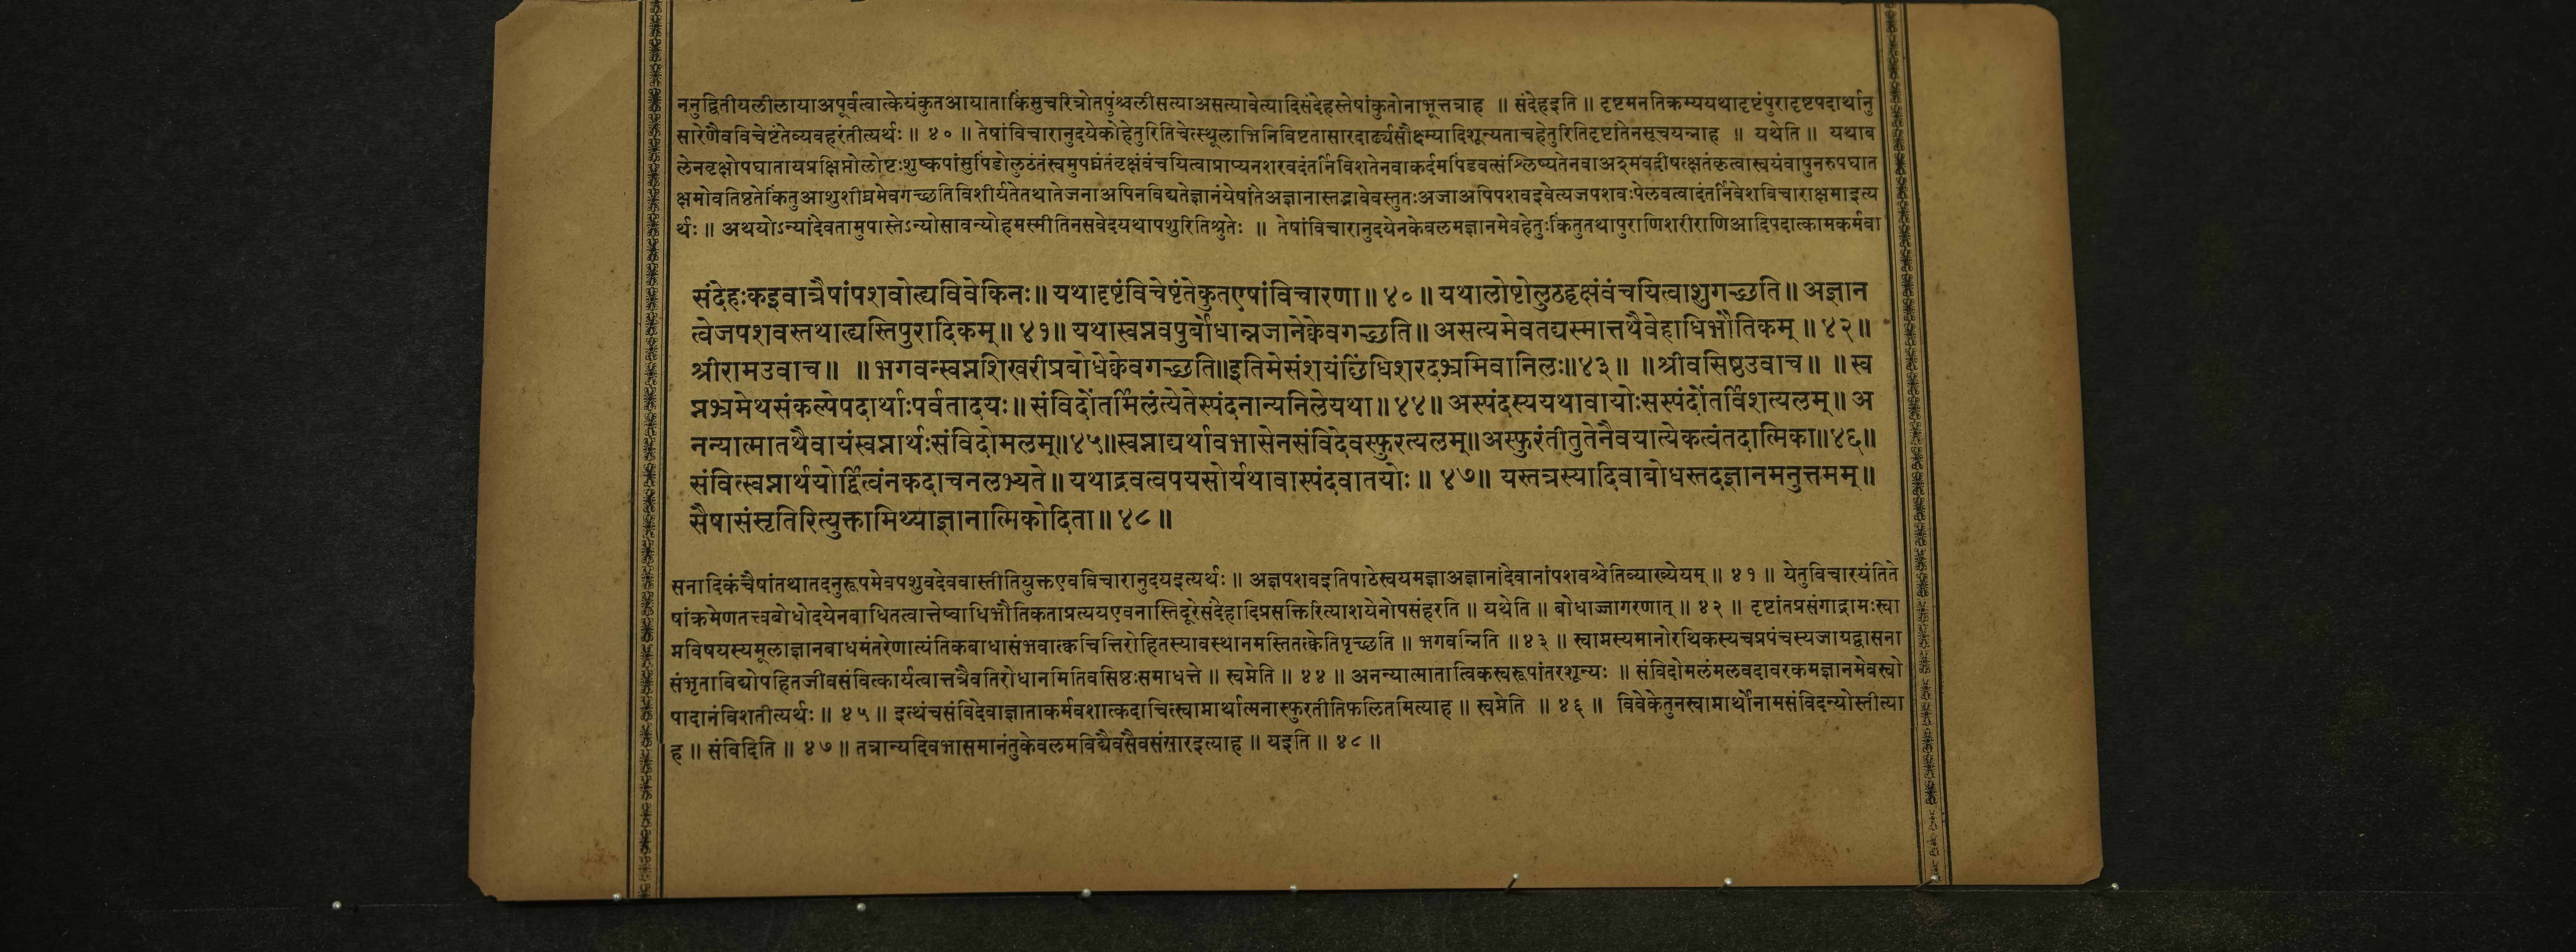 ननुद्वितीयलीलायाअपूर्वत्वात्केयंकुतआयाताकिंसुचरित्रोतपुंश्चलीसत्याअसत्यावेत्यादिसंदेहस्तेषांकुतोनाभूत्तत्राह ॥ संदेहइति ॥ दृष्टमनतिक्रम्ययथादृष्टंपुरादृष्टपदार्थानु
सारेणैवविचेष्टंतेव्यवहरंतीत्यर्थः ॥ ४० ॥ तेषांविचारानुदयेकोहेतुरितिचेत्स्थूलाभिनिविष्टतासारदार्ढ्यसौक्ष्म्यादिशून्यताचहेतुरितिदृष्टांतेनसूचयन्नाह ॥ यथेति ॥ यथाब
लेनवृक्षोपघातायप्रक्षिप्तोलोष्टःशुष्कपांसुपिंडोलुठंतंस्वमुपघ्नंतंवृक्षंवंचयित्वाप्राप्यनशरवदंतर्निविशतेनवाकर्दमपिंडवत्संश्लिष्यतेनवाअश्मवद्वीषत्क्षतंकृत्वास्वयंवापुनरुपघात
क्षमोवतिष्ठतेकिंतुआशुशीघ्रमेवगच्छतिविशीर्यतेतथातेजनाअपिनविद्यतेज्ञानंयेषांतेअज्ञानास्तद्भावेवस्तुतःअजाअपिपशवइवेत्यजपशवःपेलवत्वादंतर्निवेशविचाराक्षमाइत्य
र्थः ॥ अथयोऽन्यांदेवतामुपास्तेऽन्योसावन्योहमस्मीतिनसवेदयथापशुरितिश्रुतेः ॥ तेषांविचारानुदयेनकेवलमज्ञानमेवहेतुःकिंतुतथापुराणिशरीराणिआदिपदात्कामकर्मवा
संदेहःकइवात्रैषांपशवोह्यविवेकिनः॥ यथादृष्टंविचेष्टंतेकुतएषांविचारणा॥ ४० ॥ यथालोष्टोलुठद्वृक्षंवंचयित्वाशुगच्छति॥ अज्ञान
त्वेजपशवस्तथाह्यस्तिपुरादिकम्॥ ४१॥ यथास्वप्नवपुर्बोधान्नजानेक्वेवगच्छति॥ असत्यमेवतद्यस्मात्तथैवेहाधिभौतिकम् ॥ ४२॥
श्रीरामउवाच॥ ॥ भगवन्स्वप्नशिखरीप्रबोधेक्वेवगच्छति॥इतिमेसंशयंछिंधिशरदभ्रमिवानिलः॥४३॥ ॥श्रीवसिष्ठउवाच॥ ॥ स्व
प्नभ्रमेथसंकल्पेपदार्थाःपर्वतादयः॥ संविदोंतर्मिलंत्येतेस्पंदनान्यनिलेयथा॥ ४४॥ अस्पंदस्ययथावायोःसस्पंदोंतर्विशत्यलम्॥ अ
नन्यात्मातथैवायंस्वप्नार्थःसंविदोमलम्॥४५॥स्वप्नाद्यर्थावभासेनसंविदेवस्फुरत्यलम्॥अस्फुरंतीतुतेनैवयात्येकत्वंतदात्मिका॥४६॥
संवित्स्वप्नार्थयोर्द्वित्वंनकदाचनलभ्यते॥ यथाद्रवत्वपयसोर्यथावास्पंदवातयोः॥ ४७॥ यस्तत्रस्यादिवाबोधस्तदज्ञानमनुत्तमम्॥
सैषासंसृतिरित्युक्तामिथ्याज्ञानात्मिकोदिता॥ ४८॥
सनादिकंचैषांतथातदनुरूपमेवपशुवदेववास्तीतियुक्तएवविचारानुदयइत्यर्थः ॥ अज्ञपशवइतिपाठेस्वयमज्ञाअज्ञानांदेवानांपशवश्चेतिव्याख्येयम् ॥ ४१ ॥ येतुविचारयंतिते
षांक्रमेणतत्त्वबोधोदयेनबाधितत्वात्तेष्वाधिभौतिकताप्रत्ययएवनास्तिदूरेसंदेहादिप्रसक्तिरित्याशयेनोपसंहरति ॥ यथेति ॥ बोधाज्जागरणात् ॥ ४२ ॥ दृष्टांतप्रसंगाद्रामःस्वा
प्नविषयस्यमूलाज्ञानबाधमंतरेणात्यंतिकबाधासंभवात्क्वचित्तिरोहितस्यावस्थानमस्तितत्क्वेतिपृच्छति ॥ भगवन्निति ॥ ४३ ॥ स्वाप्नस्यमानोरथिकस्यचप्रपंचस्यजाग्रद्वासना
संभृताविद्योपहितजीवसंवित्कार्यत्वात्तत्रैवतिरोधानमितिवसिष्ठःसमाधत्ते ॥ स्वप्नेति ॥ ४४ ॥ अनन्यात्मातात्विकस्वरूपांतरशून्यः ॥ संविदोमलंमलवदावरकमज्ञानमेवस्वो
पादानंविशतीत्यर्थः ॥ ४५ ॥ इत्थंचसंविदेवाज्ञाताकर्मवशात्कदाचित्स्वाप्नार्थात्मनास्फुरतीतिफलितमित्याह ॥ स्वप्नेति ॥ ४६ ॥ विवेकेतुनस्वाप्नार्थोनामसंविदन्योस्तीत्या
ह ॥ संविदिति ॥ ४७ ॥ तत्रान्यदिवभासमानंतुकेवलमविद्यैवसैवसंसारइत्याह ॥ यइति ॥ ४८ ॥